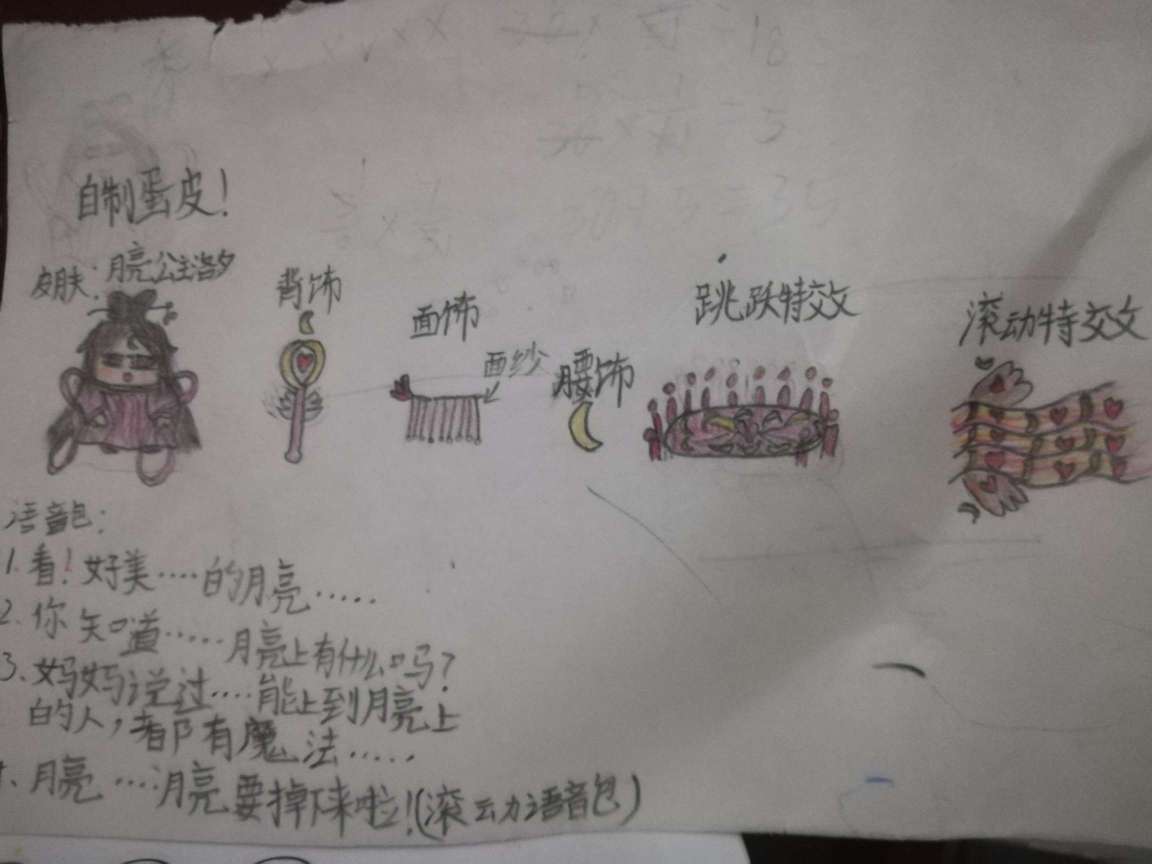 自制蛋皮！
皮肤：月亮公主洛夕
背饰
面饰
面纱
腰饰
跳跃特效
滚动特效
语音包：
1.看！好美....的月亮.....
2.你知道.....月亮上有什么吗？
3.妈妈说过....能上到月亮上
的人，都有魔法.....
月亮....月亮要掉下来啦！(滚动语音包)